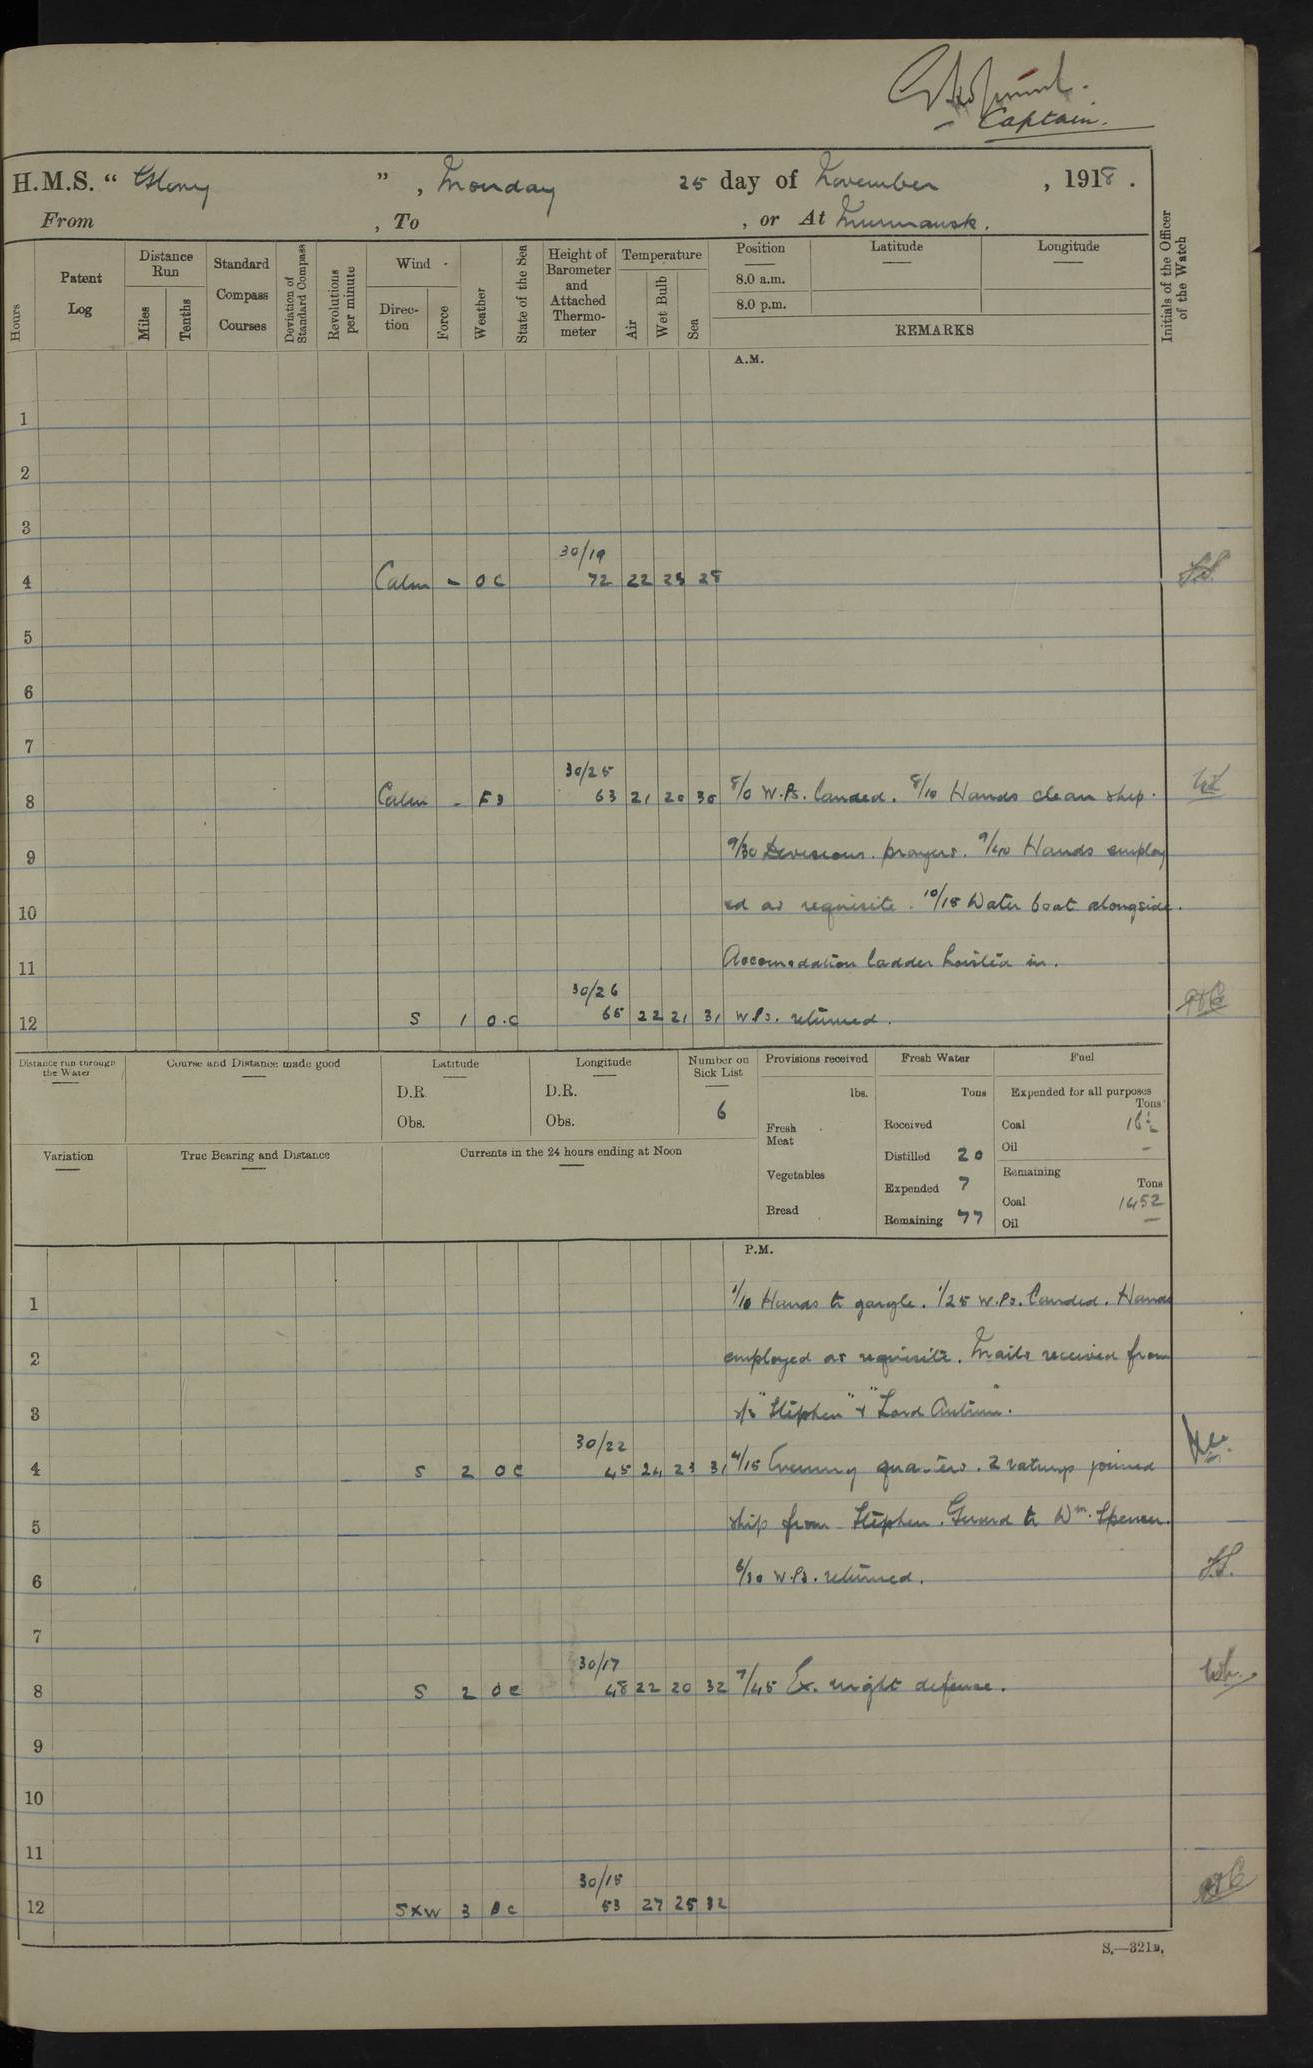 Captain.
H.M.S. “ Glory ” , Monday 25 day of November , 1918 .
From , To , or At Murmansk.
Hours
Patent Log
Distance Run
Miles
Tenths
Standard Compass Courses
Deviation of Standard Compass
Revolutions per minute
Wind
Direc-tion
Force
Weather
State of the Sea
Height of Barometer and Attached Thermo-meter
Temperature
Air
Wet Bulb
Sea
Position
8.0 a.m.
8.0 p.m.
Latitude
Longitude
REMARKS
Initials of the Officer of the Watch
A.M.
1
2
3
30/19
4 Calm - OC 72 22 23 28
5
6
7
30/25
8 Calm - 63 21 20 30 8/0 W.Ps. landed. 8/10 Hands clean ship.
9 9/30 Divisions. prayers. 9/40 Hands employ
10 ed as requisite. 10/15 Water boat alongside.
11 Accomodation ladder hoisted in.
30/26
12 S 1 O.C 65 22 21 31 W.Ps. returned.
Distance run through the Water
Course and Distance made good
Latitude
D.R.
Obs.
Longitude
D.R.
Obs.
Number on Sick List
6
Provisions received
lbs.
Fresh Meat
Vegetables
Bread
Fresh Water
Tons
Received
Distilled 20
Expended 7
Remaining 77
Fuel
Expended for all purposes
Tons
Coal 16½
Oil —
Remaining
Tons
Coal 1452
Oil —
Variation
True Bearing and Distance
Currents in the 24 hours ending at Noon
P.M.
1 1/10 Hands to gargle. 1/25 W.Ps. landed. Hands
2 employed as requisite. Mails received from
3 s/s "Stephen" & "Lord Antrim".
30/22
4 S 2 OC 45 24 23 31 4/15 Evening quarters. 2 ratings joined
5 ship from Stephen. Guard to Wm. Spencer.
6 6/30 W.Ps. returned.
7
30/17
8 S 2 OC 48 22 20 32 7/45 Ex. night defense.
9
10
11
30/15
12 SXW 3 OC 53 27 25 32
S.—321B.